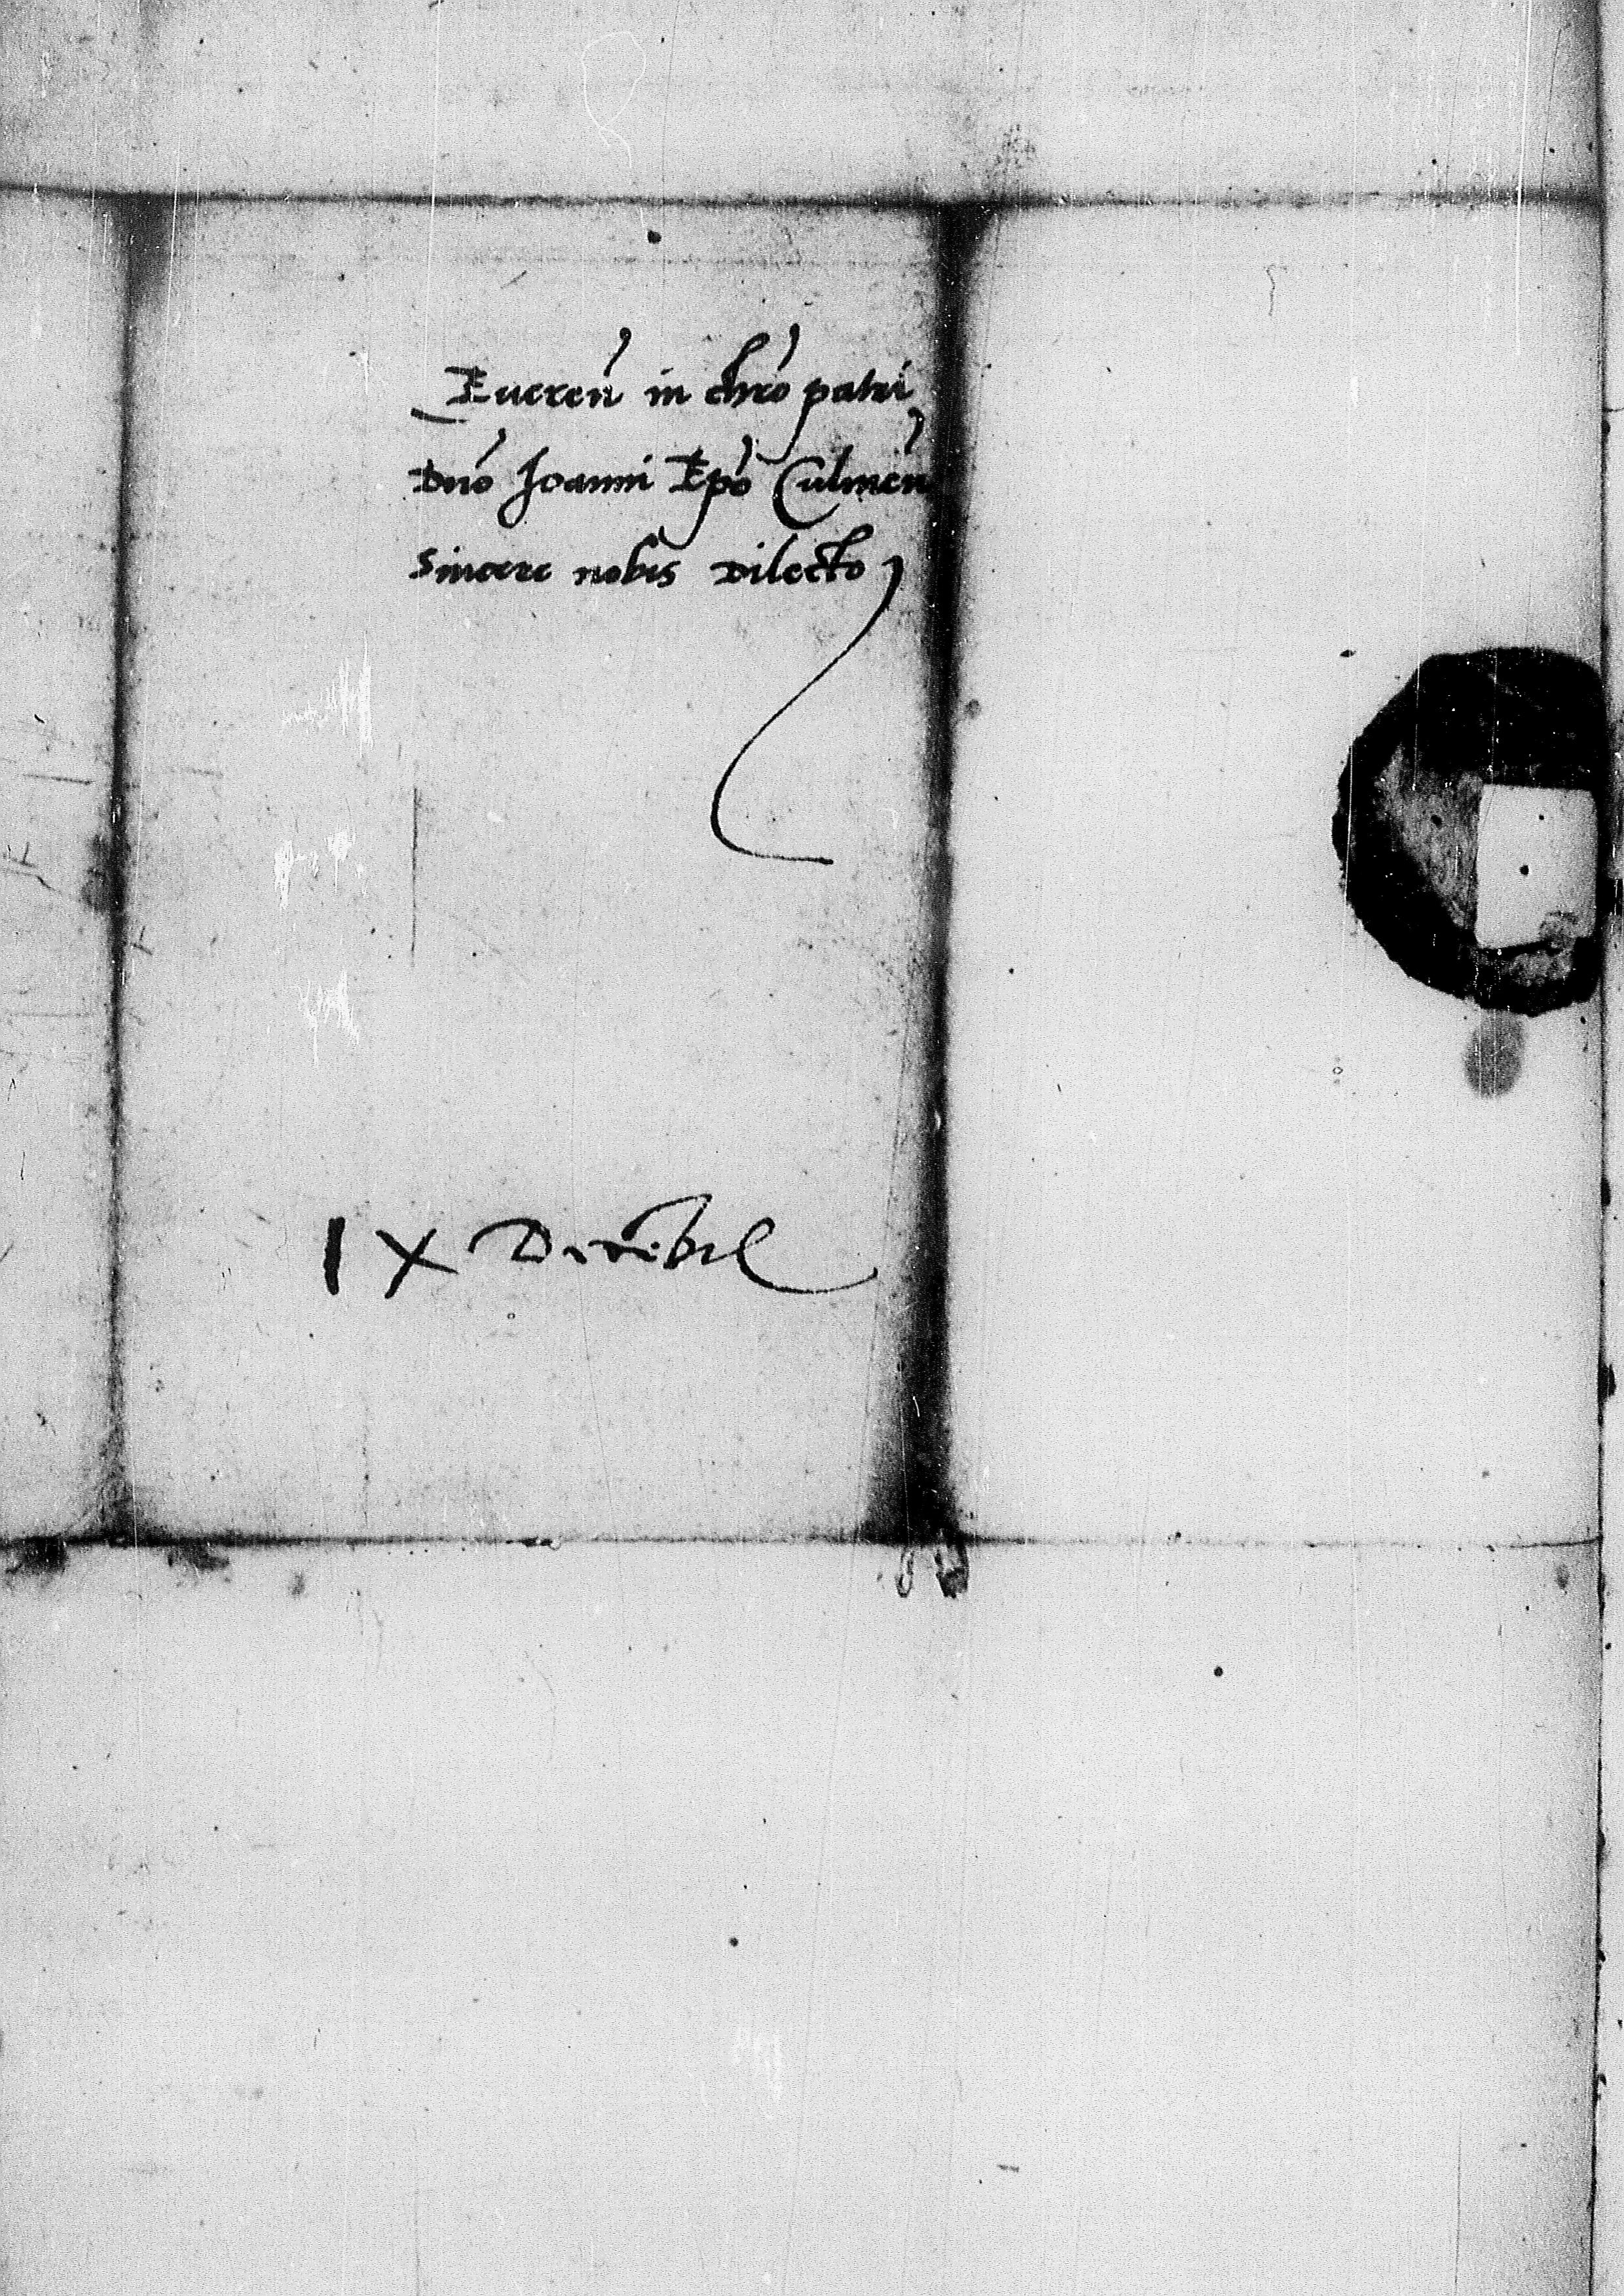 Reueren in chro patri
Dno Joanni Epo Culmen
sincere nobis dilecto
IX Decembr